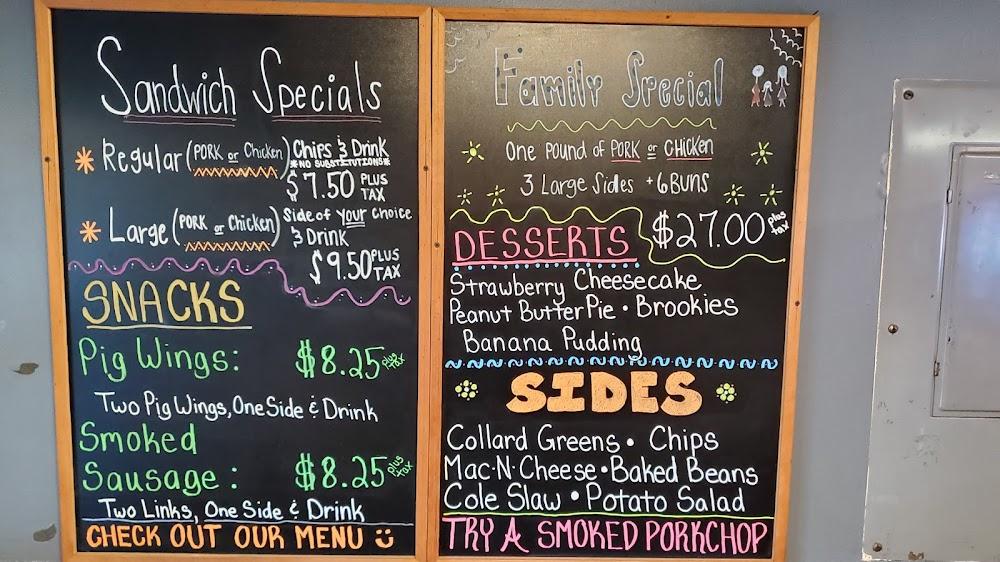 Sandwich Specials
* Regular (PORK or Chicken) Chips & Drink
*NO SUBSTITUTIONS*
$7.50 PLUS TAX
* Large (PORK or Chicken) Side of Your Choice
& Drink
$9.50 PLUS TAX
SNACKS
Pig Wings: $8.25 plus tax
Two Pig Wings, One Side & Drink
Smoked
Sausage: $8.25 plus tax
Two Links, One Side & Drink
CHECK OUT OUR MENU
Family Special
One Pound of PORK or CHICKen
3 Large Sides + 6 BUNS
$27.00 plus tax
DESSERTS
Strawberry Cheesecake
Peanut Butter Pie • Brookies
Banana Pudding
SIDES
Collard Greens • Chips
Mac-N-Cheese • Baked Beans
Cole Slaw • Potato Salad
TRY A SMOKED PORKCHOP